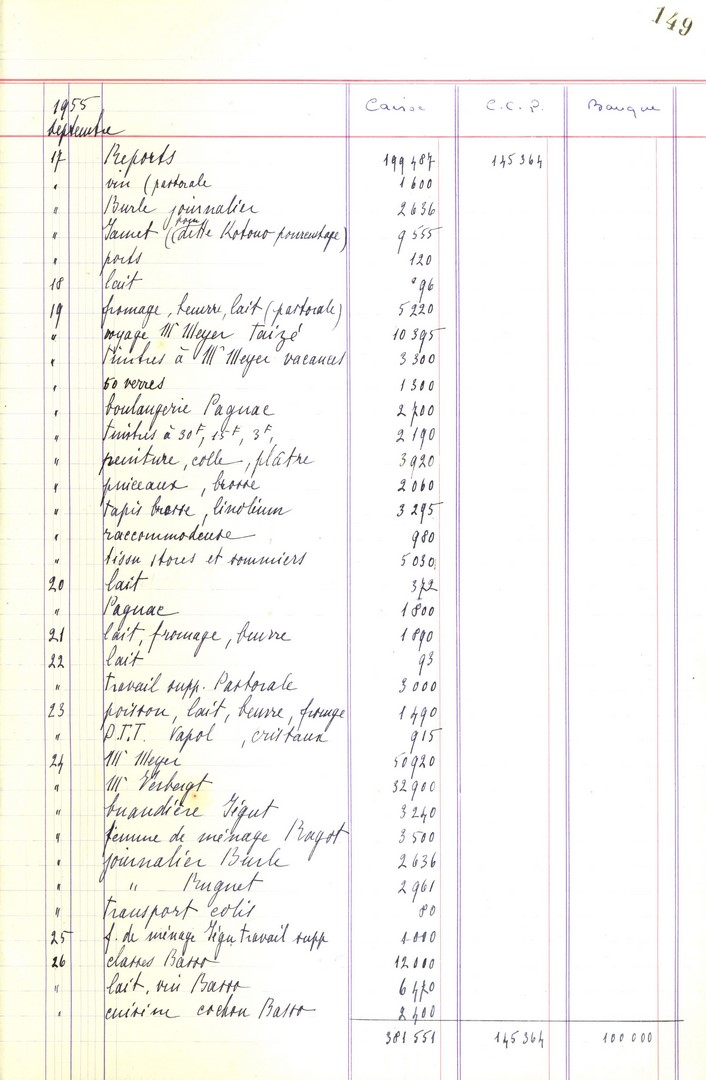 149
1955 Caisse C.C.P. Banque
Septembre
17 Reports 199 487 145 364
" vin (pastorale 1 600
" Burle journalier 2 636
" Jamet (pour dette Kotouo pourcentage) 9 555
" ports 120
18 lait " 96
19 fromage, beurre, lait (pastorale) 5 220
" voyage Mr Meyer Taizé 10 395
" timbres à Mr Meyer vacances 3 300
" 50 verres 1 300
" boulangerie Pagnac 2 700
" timbres à 30F, 15F, 3F, 2 190
" peinture, colle, plâtre 3 920
" pinceaux, brosse 2 060
" tapis brosse, linolium 3 295
" raccommodeuse 980
" tissu stores et sommiers 5 030
20 lait 372
" Pagnac 1 800
21 lait, fromage, beurre 1 890
22 lait 93
" travail supp. Pastorale 3 000
23 poisson, lait, beurre, fromge 1 490
" P.T.T. Vapol, cristaux 915
24 Mr Meyer 50 920
" Mr Verbergt 32 900
" buandière Jégut 3 240
" femme de ménage Ragot 3 500
" journalier Burle 2 636
" " Rugnet 2 961
" transport colis 80
25 f. de ménage Jégu travail supp 1 000
26 classes Basso 12 000
" lait, vin Basso 6 470
" cuisine cochon Basso 2 400
381 551 145 364 100 000